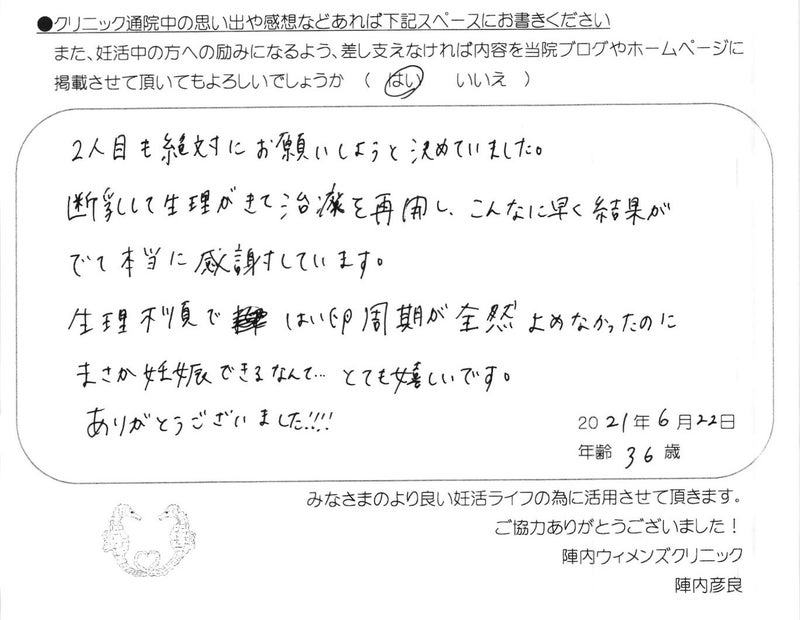 ●クリニック通院中の思い出や感想などあれば下記スペースにお書きください
また、妊活中の方への励みになるよう、差し支えなければ内容を当院ブログやホームページに
掲載させて頂いてもよろしいでしょうか （ はい いいえ ）
2人目も絶対にお願いしようと決めていました。
断乳して生理がきて治療を再開し、こんなに早く結果が
でて本当に感謝しています。
生理不順で はい卵周期が全然よめなかったのに
まさか妊娠できるなんて… とても嬉しいです。
ありがとうございました!!!!
2021年6月22日
年齢 36歳
みなさまのより良い妊活ライフの為に活用させて頂きます。
ご協力ありがとうございました！
陣内ウィメンズクリニック
陣内彦良